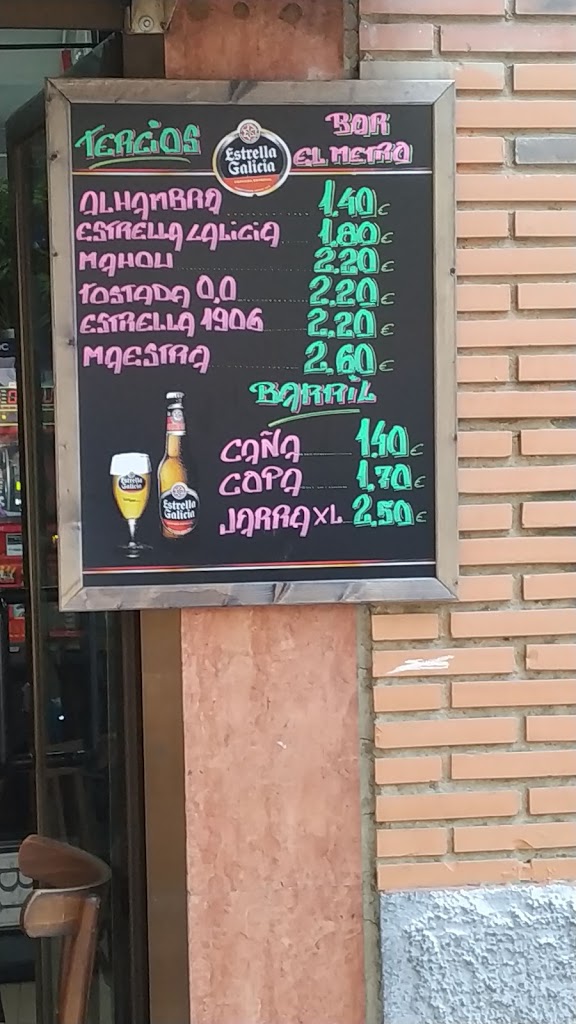 TERCIOS
Estrella Galicia
BAR
EL METRO
ALHAMBRA 1.40€
ESTRELLA GALICIA 1.80€
MAHOU 2.20€
TOSTADA 0,0 2.20€
ESTRELLA 1906 2.20€
MAESTRA 2.60€
BARRIL
CAÑA 1.40€
COPA 1.70€
JARRA XL 2.50€
Estrella Galicia
Estrella Galicia